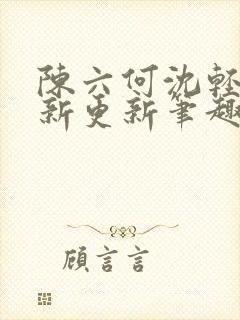 陳六何沈輕
新更新筆趣
顧言言